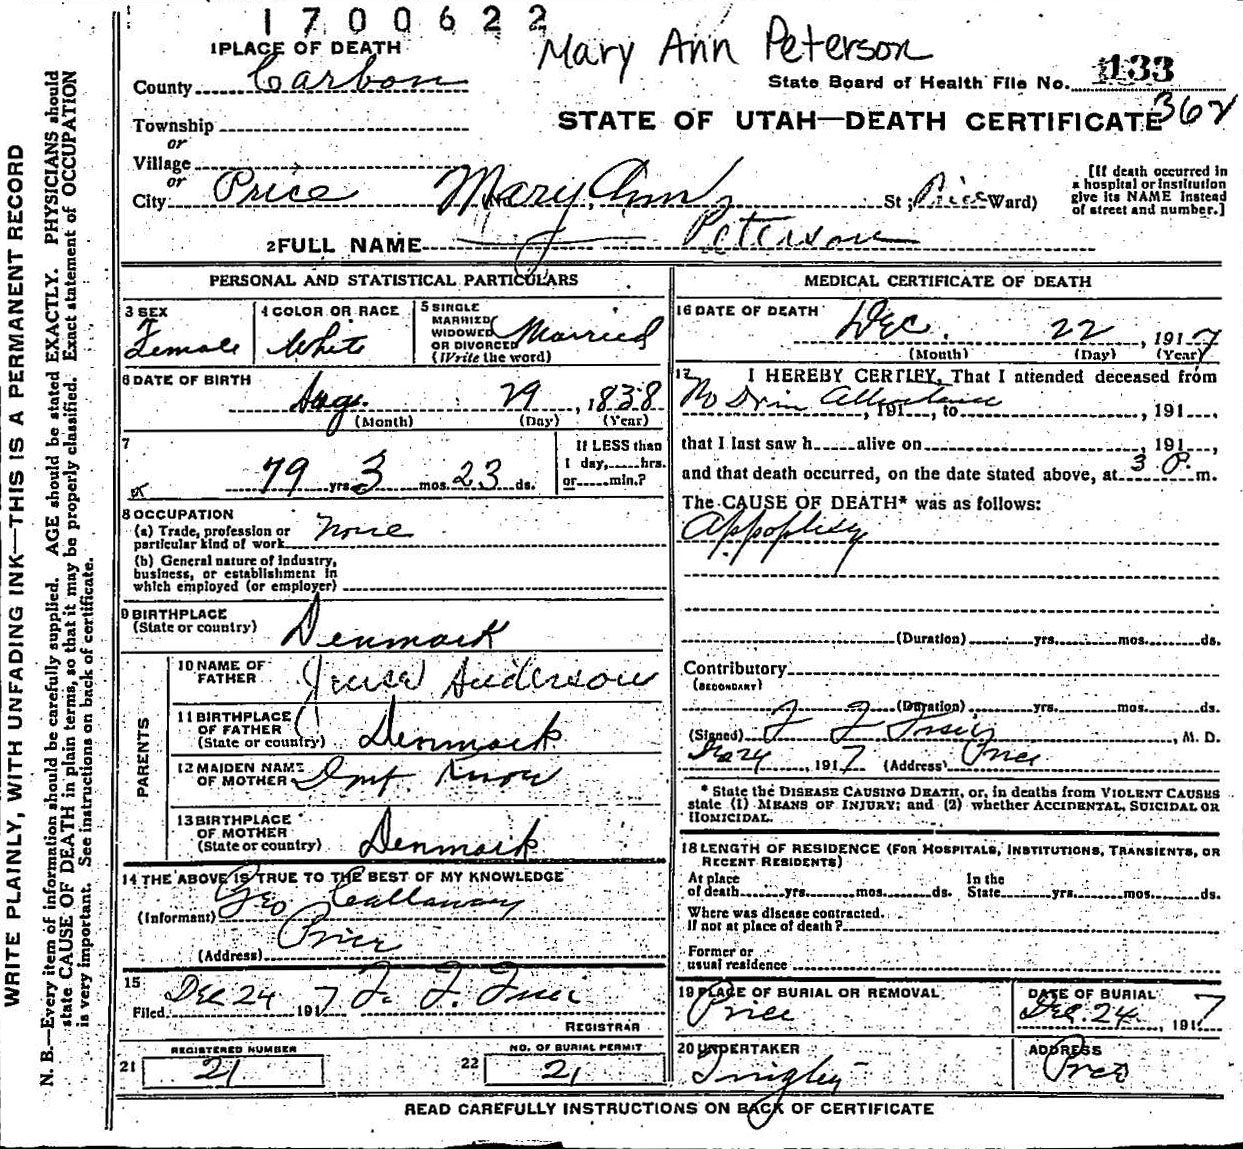 1700622
Mary Ann Peterson
1 PLACE OF DEATH
County Carbon
State Board of Health File No. 133
362
Township
or
STATE OF UTAH—DEATH CERTIFICATE
Village
or
City Price Mary Ann St; Price Ward)
[If death occurred in
a hospital or institution
give its NAME instead
of street and number.]
2 FULL NAME Peterson
PERSONAL AND STATISTICAL PARTICULARS
3 SEX
Female
4 COLOR OR RACE
White
5 SINGLE
MARRIED
WIDOWED
OR DIVORCED
(Write the word)
Married
6 DATE OF BIRTH
Aug. 29, 1838
(Month) (Day) (Year)
7
79 yrs. 3 mos. 23 ds.
If LESS than
1 day,......hrs.
or......min.?
8 OCCUPATION
(a) Trade, profession or
particular kind of work None
(b) General nature of industry,
business, or establishment in
which employed (or employer)
9 BIRTHPLACE
(State or country) Denmark
PARENTS
10 NAME OF
FATHER Anderson
11 BIRTHPLACE
OF FATHER
(State or country) Denmark
12 MAIDEN NAME
OF MOTHER Dont Know
13 BIRTHPLACE
OF MOTHER
(State or country) Denmark
14 THE ABOVE IS TRUE TO THE BEST OF MY KNOWLEDGE
(Informant) Geo Callaway
(Address) Price
15
Filed Dec 24 1917 F. F.
REGISTRAR
21 REGISTERED NUMBER
21
22 NO. OF BURIAL PERMIT
21
MEDICAL CERTIFICATE OF DEATH
16 DATE OF DEATH
Dec. 22, 1917
(Month) (Day) (Year)
17 I HEREBY CERTIFY, That I attended deceased from
No, 191, to, 191,
that I last saw h alive on, 191,
and that death occurred, on the date stated above, at 3 P. m.
The CAUSE OF DEATH* was as follows:
Appoplixy
(Duration) yrs. mos. ds.
Contributory
(SECONDARY)
(Duration) yrs. mos. ds.
(Signed), M. D.
Dec 24, 1917 (Address) Price
* State the DISEASE CAUSING DEATH, or, in deaths from VIOLENT CAUSES
state (1) MEANS OF INJURY; and (2) whether ACCIDENTAL, SUICIDAL OR
HOMICIDAL.
18 LENGTH OF RESIDENCE (FOR HOSPITALS, INSTITUTIONS, TRANSIENTS, OR
RECENT RESIDENTS)
At place In the
of death yrs. mos. ds. State yrs. mos. ds.
Where was disease contracted,
If not at place of death?
Former or
usual residence
19 PLACE OF BURIAL OR REMOVAL
Price
DATE OF BURIAL
Dec. 24, 1917
20 UNDERTAKER
ADDRESS
Price
READ CAREFULLY INSTRUCTIONS ON BACK OF CERTIFICATE
WRITE PLAINLY, WITH UNFADING INK—THIS IS A PERMANENT RECORD
N. B.—Every item of information should be carefully supplied. AGE should be stated EXACTLY. PHYSICIANS should
state CAUSE OF DEATH in plain terms, so that it may be properly classified. Exact statement of OCCUPATION
is very important. See instructions on back of certificate.